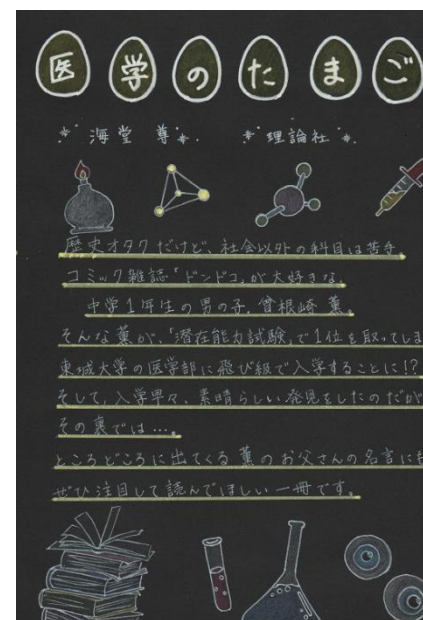 医学のたまご
海堂 尊 理論社
歴史オタクだけど、社会以外の科目は苦手。
コミック雑誌「ドンドコ」が大好きな、
中学1年生の男の子、曾根崎 薫。
そんな薫が、「潜在能力試験」で1位を取ってしま
東城大学の医学部に飛び級で入学することに!?
そして、入学早々、素晴らしい発見をしたのだが
その裏では…。
ところどころに出てくる薫のお父さんの名言にも
ぜひ注目して読んでほしい一冊です。